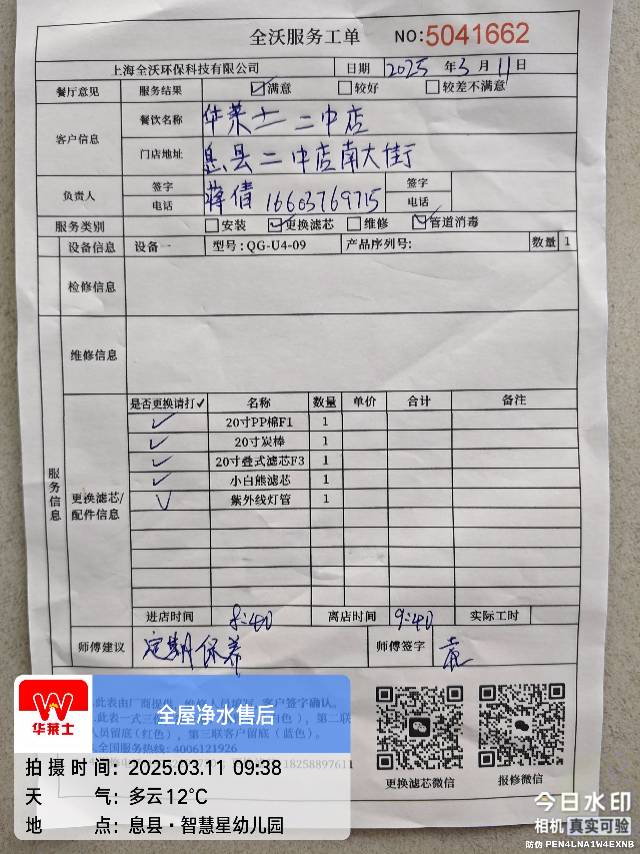 全沃服务工单 NO:5041662
上海全沃环保科技有限公司 日期 2025 年 3 月 11 日
餐厅意见 服务结果 ☑满意 □较好 □较差不满意
客户信息 餐饮名称 华莱士 二中店
门店地址 息县二中店南大街
负责人 签字 蒋倩 签字
电话 16603769715 电话
服务类别 □安装 ☑更换滤芯 □维修 ☑管道消毒
设备信息 设备一 型号:QG-U4-09 产品序列号: 数量 1
服务信息
检修信息
维修信息
更换滤芯/配件信息
是否更换请打✓ 名称 数量 单价 合计 备注
✓ 20寸PP棉F1 1
✓ 20寸炭棒 1
✓ 20寸叠式滤芯F3 1
✓ 小白熊滤芯 1
✓ 紫外线灯管 1
进店时间 8:40 离店时间 9:40 实际工时
师傅建议 定期保养 师傅签字
此表由厂商提供 客户签字确认。
此表一式三 色),第二联
人员留底(红色),第三联客户留底(蓝色)。
全国服务热线:4006121926
18258897611
更换滤芯微信 报修微信
华莱士
全屋净水售后
拍摄时间:2025.03.11 09:38
天气:多云12℃
地点:息县·智慧星幼儿园
今日水印
相机 真实可验
防伪 PEN4LNA1W4EXNB